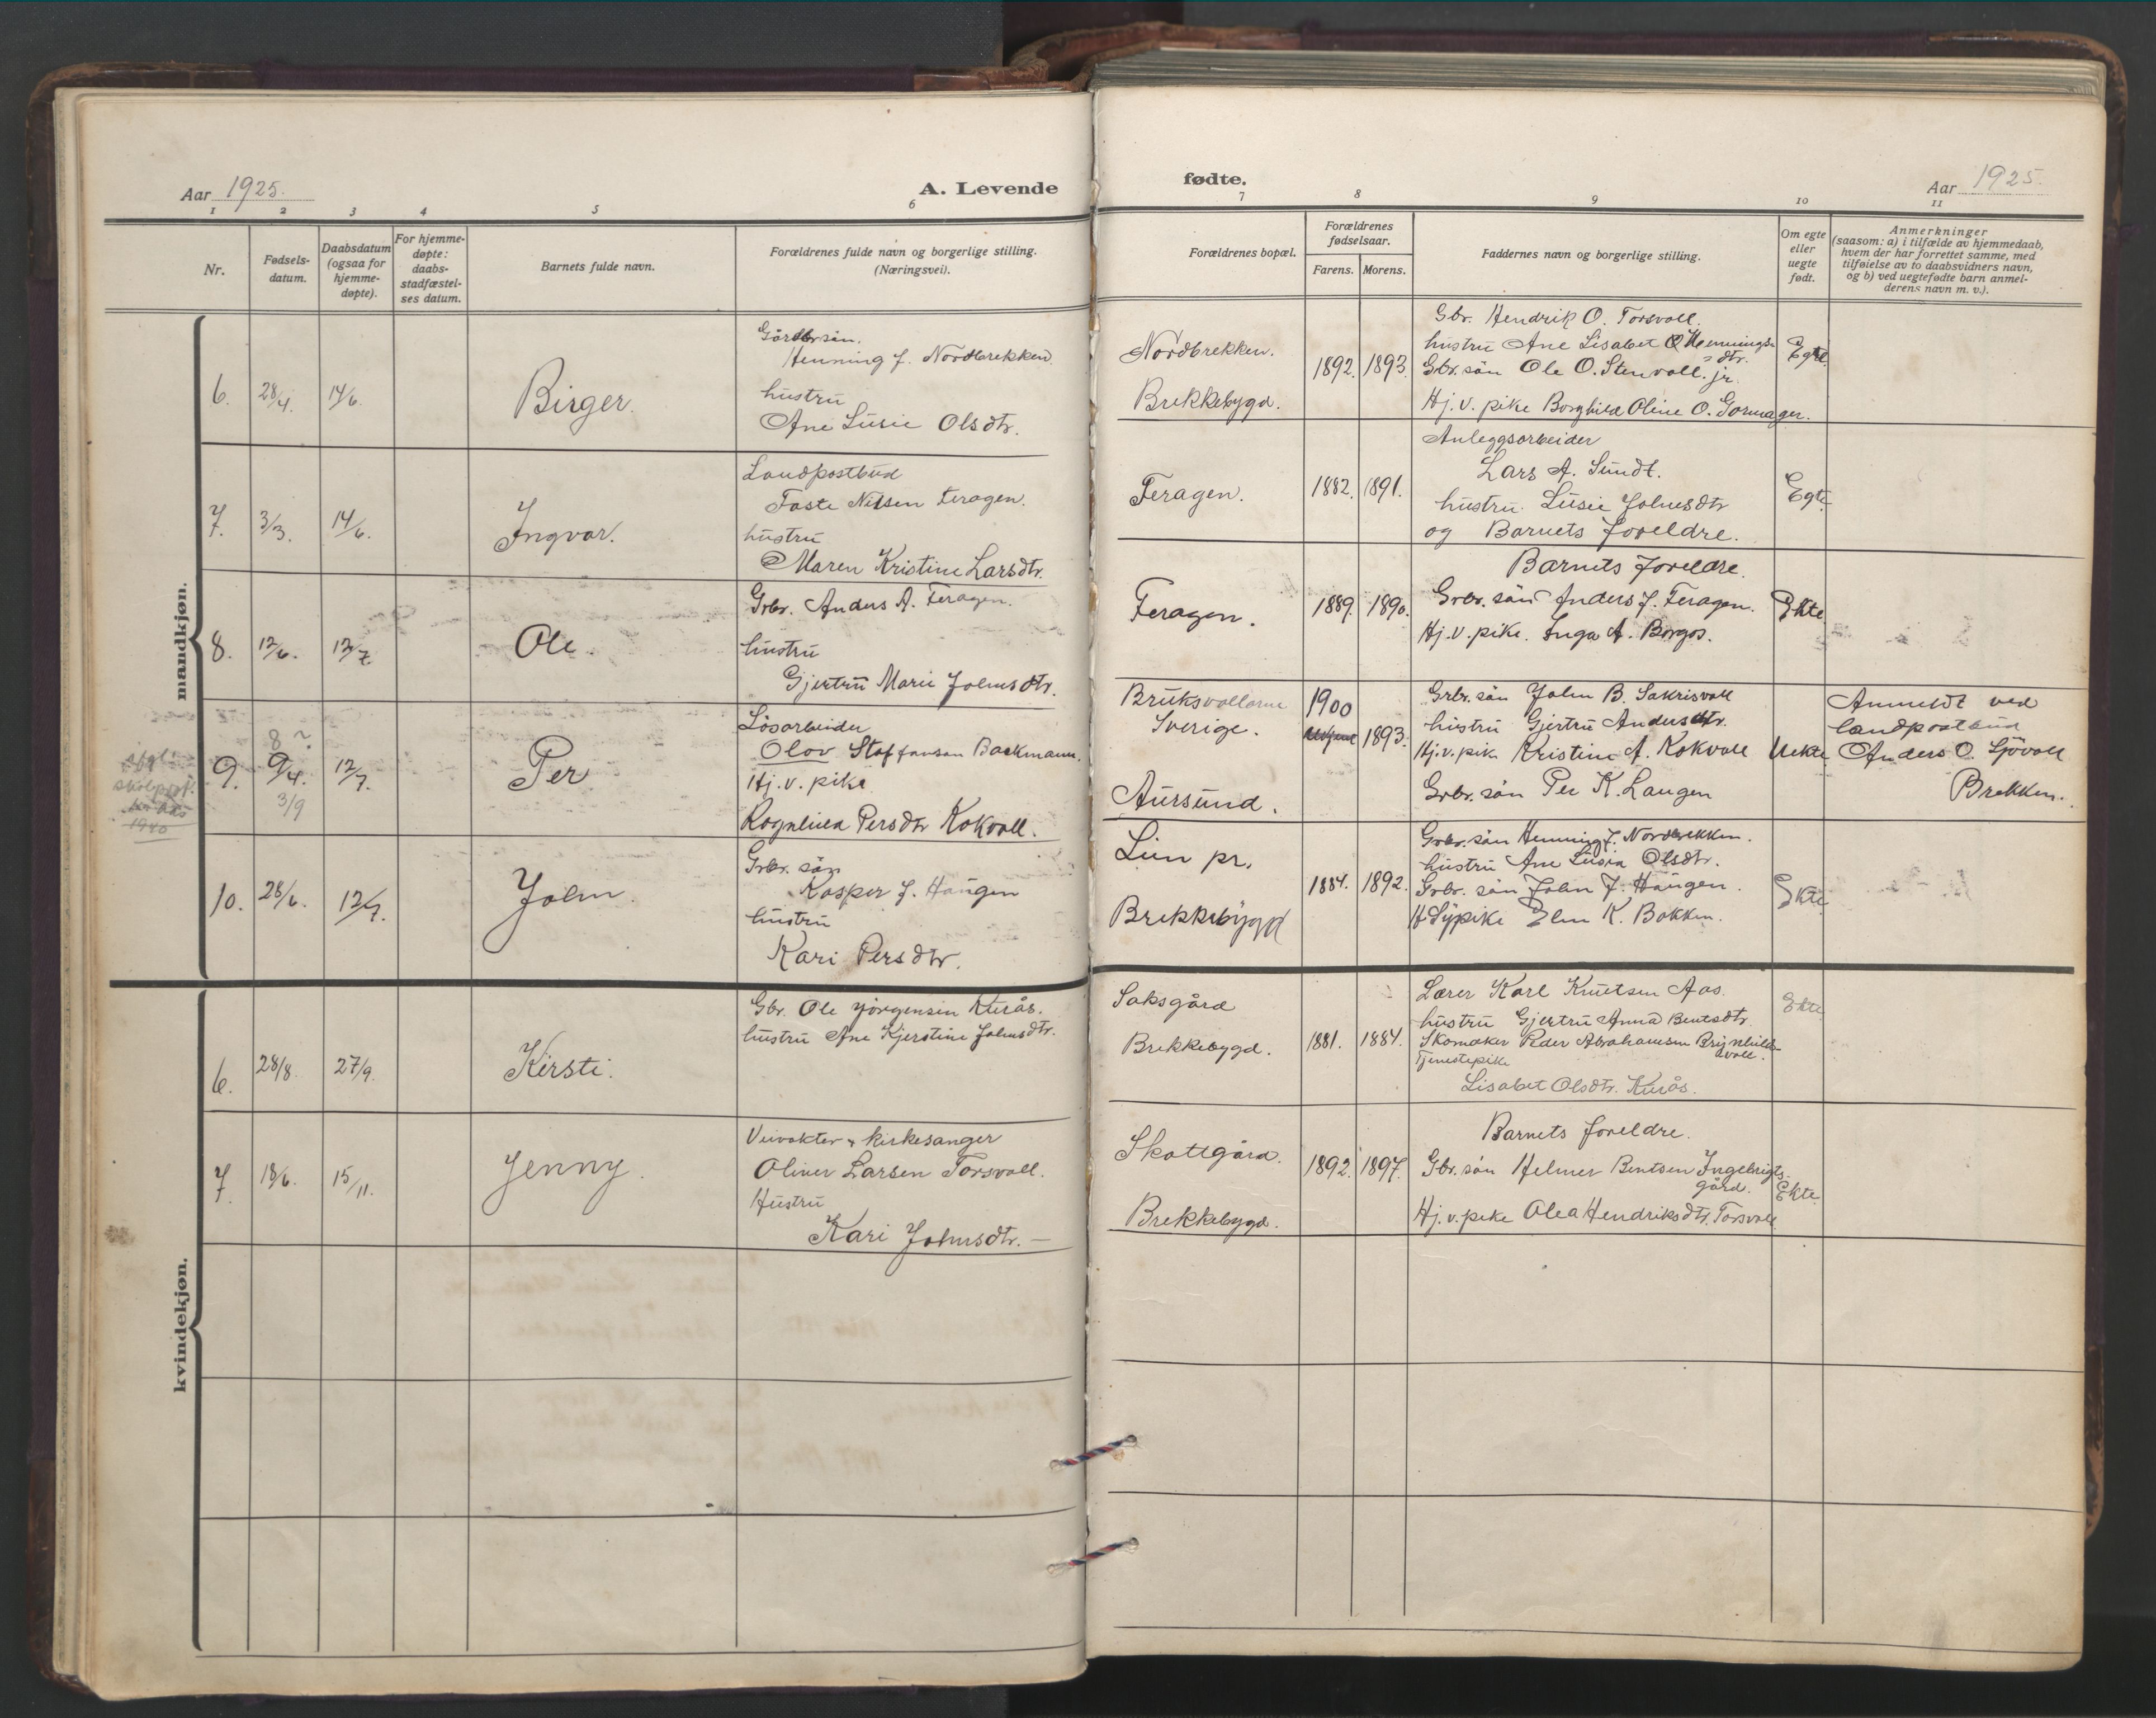 Aar 1925.
A. Levende
1 2 3 4 5 6
Nr.
Fødsels-
datum.
Daabsdatum
(ogsaa for
hjemme-
døpte).
For hjemme-
døpte:
daabs-
stadfæstel-
ses datum.
Barnets fulde navn.
Forældrenes fulde navn og borgerlige stilling.
(Næringsvei).
mandkjøn.
6. 28/4. 14/6. Birger.
Henning J. Nordbrekken
hustru
Ane Lusie Olsdtr.
7. 3/3. 14/6. Ingvar.
Landpostbud
Faste Nilsen Feragen.
hustru
Maren Kristine Larsdtr.
8. 12/6. 12/7 Ole.
Grbr. Anders A. Feragen.
hustru
Gjertru Marie Johnsdtr.
8 ?
9. 9/4. 12/7. Per
3/9
1940
Lösarbeider
Olov Staffansen Backmann.
Hj. v. pike
Ragnhild Persdtr Kokvoll.
10. 28/6. 12/7. John.
Grbr. sön
Kasper J. Haugen
hustru
Kari Persdtr.
kvindekjøn.
6. 28/8. 27/9. Kirsti.
Gbr. Ole Jörgensen Kurås.
hustru Ane Kjerstine Johnsdtr.
7. 18/6. 15/11. Jenny.
Veivokter & kirkesanger
Oliver Larsen Torsvoll.
Hustru
Kari Johnsdtr. —
fødte.
Aar 1925.
7 8 9 10 11
Forældrenes bopæl.
Forældrenes
fødselsaar.
Farens. Morens.
Faddernes navn og borgerlige stilling.
Om egte
eller
uegte
født.
Anmerkninger
(saasom: a) i tilfælde av hjemmedaab,
hvem der har forrettet samme, med
tilføielse av to daabsvidners navn,
og b) ved uegtefødte barn anmel-
derens navn m. v.).
Nordbrekken.
Brekkebygd.
1892. 1893.
Gbr. Hendrik O. Torsvoll.
hustru Ane Lisabet Hennings-
dtr.
Gbr. sön Ole O. Stenvoll. jr.
Hj. v. pike Borghild Oline O. Gormager.
Egte
Feragen.
1882. 1891.
Anleggsarbeider
Lars A. Sundt.
hustru Lusie Johnsdtr
og Barnets foreldre.
Egte.
Feragen.
1889. 1890.
Barnets foreldre.
Grbr. sön Anders J. Feragen.
Hj. v. pike. Inga A. Borgos.
Ekte.
Bruksvallarne
Sverige.
Aursund.
1900
1893.
Grbr. sön John B. Sakrisvoll
hustru Gjertru Andersdtr.
Hj. v. pik Kristine A. Kokvoll
Grbr. sön Per K. Langen
Uekte
Anmeldt ved
landpostbud
Anders O. Sjövoll
Brekken.
Lien pr.
Brekkebygd
1884. 1892.
Grbr. sön Henning J. Nordbrekken.
hustru Ane Lusia Olsdtr.
Grbr. sön John J. Haugen.
Sypike Elen K. Bakken.
Ekte
Saksgård
Brekkebygd.
1881. 1884.
Lærer Karl Knutsen Aas.
hustru Gjertru Anna Bentsdtr.
Skomaker Peder Abrahamsen Brynhilds-
voll.
Tjenestepike
Lisabet Olsdtr. Kurås.
Ekte
Skottgård.
Brekkebygd.
1892. 1897.
Barnets foreldre.
Gbr. sön Helmer Bentsen Ingebrigts-
gård.
Hj. v. pike Olea Hendriksdtr. Torsvoll.
Ekte